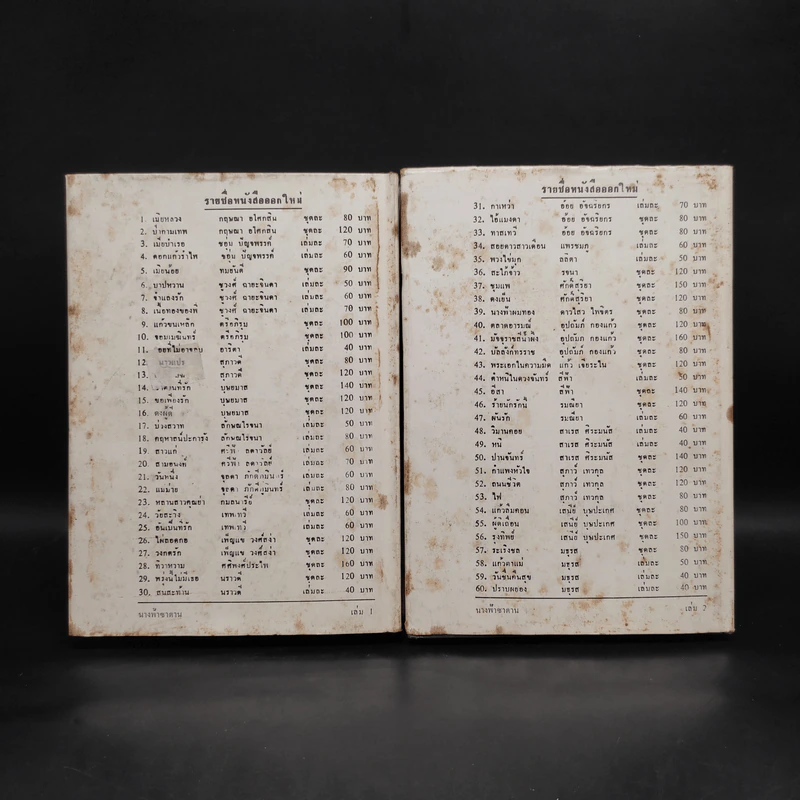 รายชื่อหนังสือออกใหม่
1. เมียหลวง กฤษณา อโศกสิน ชุดละ 80 บาท
2. ป่ากามเทพ กฤษณา อโศกสิน ชุดละ 120 บาท
3. เมียบำเรอ ช่อม ปัญจพรรค์ เล่มละ 70 บาท
4. ดอกแก้วรำไพ ช่อม ปัญจพรรค์ เล่มละ 60 บาท
5. เมียน้อย ทมยันตี ชุดละ 90 บาท
6. บาปหวาน ชูวงศ์ ฉายะจินดา เล่มละ 50 บาท
7. จำเลยรัก ชูวงศ์ ฉายะจินดา เล่มละ 60 บาท
8. เนื้อทองของพี่ ชูวงศ์ ฉายะจินดา เล่มละ 70 บาท
9. แก้วขนเหล็ก ตรีอภิรุม ชุดละ 100 บาท
10. จอมเมฆินทร์ ตรีอภิรุม ชุดละ 100 บาท
11. อาริตา เล่มละ 40 บาท
12. สุภาวดี ชุดละ 80 บาท
13. สุภาวดี ชุดละ 120 บาท
14. บุษยมาส ชุดละ 140 บาท
15. ขอเพียงรัก บุษยมาส ชุดละ 120 บาท
16. บุษยมาส ชุดละ 120 บาท
17. บ่วงสวาท ลักษณโรจนา เล่มละ 50 บาท
18. คฤหาสน์ปะการัง ลักษณโรจนา เล่มละ 80 บาท
19. สาวแก่ ศรีฟ้า ลดาวัลย์ เล่มละ 60 บาท
20. สามอนงค์ ศรีฟ้า ลดาวัลย์ เล่มละ 70 บาท
21. วันหนึ่ง จุลดา ภักดีภูมินทร์ เล่มละ 60 บาท
22. แม่ม่าย จุลดา ภักดีภูมินทร์ เล่มละ 80 บาท
23. หลานสาวคุณย่า กมลนารี ชุดละ 120 บาท
24. วัยสะวิง เทพเทวี เล่มละ 60 บาท
25. อันเป็นที่รัก เทพเทวี เล่มละ 60 บาท
26. ไผ่ลอดกอ เพ็ญแข วงศ์สง่า ชุดละ 120 บาท
27. วงกตรัก เพ็ญแข วงศ์สง่า ชุดละ 120 บาท
28. ทิวาหวาม ศศิพงศ์ประไพ ชุดละ 160 บาท
29. พรุ่งนี้ไม่มีเธอ นราวดี ชุดละ 120 บาท
30. สนสะท้าน นราวดี เล่มละ 40 บาท
นางฟ้าซาตาน เล่ม 1
รายชื่อหนังสือออกใหม่
31. กาเหว่า อ้อย อัจฉริยกร เล่มละ 70 บาท
32. ไอ้แมงดา อ้อย อัจฉริยกร ชุดละ 80 บาท
33. ทาสเทวี อ้อย อัจฉริยกร ชุดละ 80 บาท
34. สอยดาวสาวเดือน แพรชมพู เล่มละ 60 บาท
35. พวงไข่มุก ลลิตา เล่มละ 50 บาท
36. สะใภ้จ้าว รจนา ชุดละ 120 บาท
37. ขุมแพ ศักดิ์สุริยา ชุดละ 150 บาท
38. ดงเย็น ศักดิ์สุริยา ชุดละ 120 บาท
39. นางฟ้าผมทอง ดาวไสว ไพจิตร ชุดละ 80 บาท
40. ตลาดอารมณ์ อุปถัมภ์ กองแก้ว ชุดละ 120 บาท
41. มัจจุราชสีน้ำผึ้ง อุปถัมภ์ กองแก้ว ชุดละ 160 บาท
42. บัลลังก์ทรราช อุปถัมภ์ กองแก้ว ชุดละ 80 บาท
43. พระเอกในความมืด แก้ว เจียระไน ชุดละ 120 บาท
44. ตำหนิในดวงจันทร์ สีฟ้า เล่มละ 50 บาท
45. อีสา สีฟ้า ชุดละ 140 บาท
46. ร้ายนักรักนี้ รมณียา ชุดละ 120 บาท
47. ผันรัก รมณียา เล่มละ 60 บาท
48. วิมานคอย สาเรส ศิระมนัส เล่มละ 40 บาท
49. หนี สาเรส ศิระมนัส เล่มละ 40 บาท
50. ปานจันทร์ สาเรส ศิระมนัส ชุดละ 140 บาท
51. กำแพงหัวใจ สุภาว์ เทวกุล ชุดละ 120 บาท
52. ถนนชีวิต สุภาว์ เทวกุล ชุดละ 120 บาท
53. ไฟ สุภาว์ เทวกุล ชุดละ 80 บาท
54. แก้วลืมคอน เสนีย์ บุษปะเกศ ชุดละ 80 บาท
55. ผู้ดีเถื่อน เสนีย์ บุษปะเกศ ชุดละ 100 บาท
56. รุ้งทิพย์ เสนีย์ บุษปะเกศ ชุดละ 150 บาท
57. ระเริงชล มธุรส ชุดละ 80 บาท
58. แก้วตาแม่ มธุรส เล่มละ 50 บาท
59. วันชื่นคืนสุข มธุรส เล่มละ 40 บาท
60. ปราบผยอง มธุรส เล่มละ 40 บาท
นางฟ้าซาตาน เล่ม 2